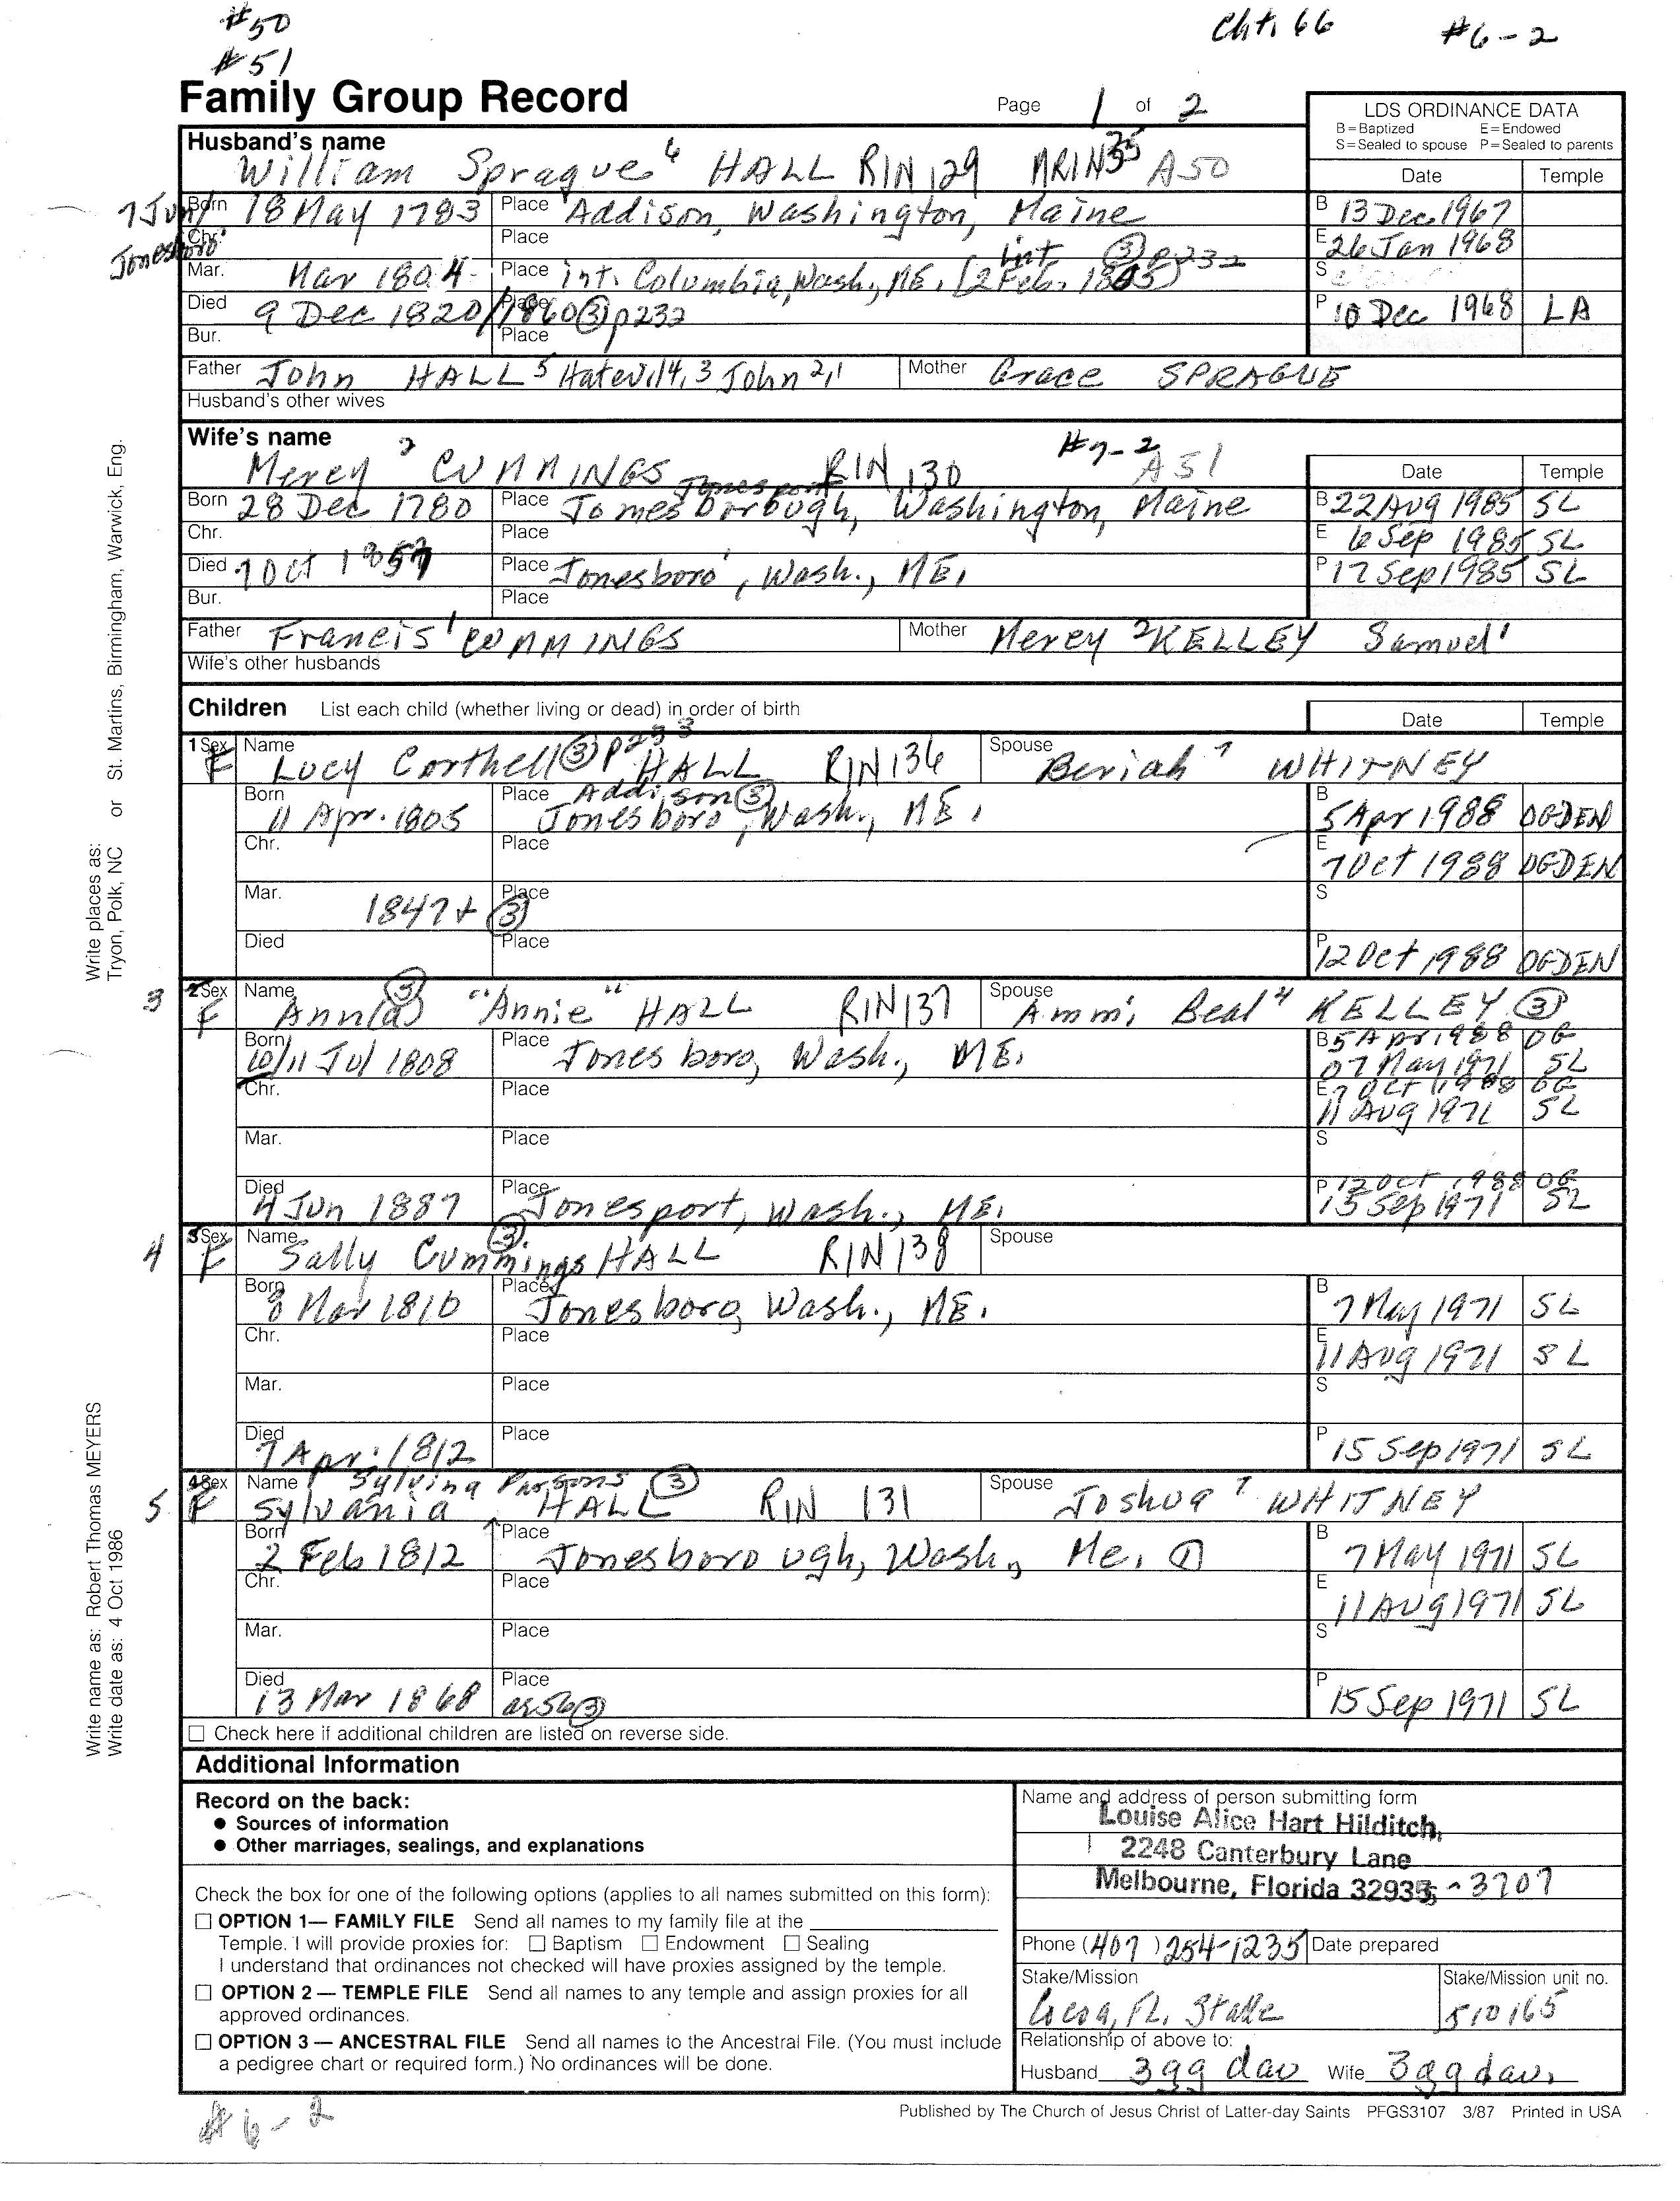 #50
#51
Cht. 66 #6-2
Family Group Record
Page 1 of 2
LDS ORDINANCE DATA
B=Baptized E=Endowed
S=Sealed to spouse P=Sealed to parents
Date Temple
Husband's name
William Sprague 6 HALL RIN 129 MRIN 35 A50
7 Jun/
Born 18 May 1783 Place Addison, Washington, Maine
B 13 Dec 1967
Jonesboro'
Chr. Place
E 26 Jan 1968
Mar. Mar 1804 Place int. Columbia, Wash., ME. [2 Feb. 1805] int (3) p232
S
Died 9 Dec 1820/1860 (3) p232 Place
P 10 Dec 1968 LA
Bur. Place
Father John HALL 5 Hatevil 4,3 John 2,1 Mother Grace SPRAGUE
Husband's other wives
Wife's name
Mercy 2 CUMMINGS RIN 130 #7-2 A51
Date Temple
Jonesport
Born 28 Dec 1780 Place Jonesborough, Washington, Maine
B 22 Aug 1985 SL
Chr. Place
E 6 Sep 1985 SL
Died 7 Oct 1857 Place Jonesboro', Wash., ME.
P 17 Sep 1985 SL
Bur. Place
Father Francis 1 CUMMINGS Mother Mercy 2 KELLEY Samuel 1
Wife's other husbands
Children List each child (whether living or dead) in order of birth
Date Temple
1 Sex F Name Lucy Corthell (3) p233 HALL RIN 136 Spouse Beriah 7 WHITNEY
Addison (3)
Born 11 Apr. 1805 Place Jonesboro, Wash., ME.
B 5 Apr 1988 OGDEN
Chr. Place
E 7 Oct 1988 OGDEN
Mar. 1847+ Place (3)
S
Died Place
P 12 Oct 1988 OGDEN
3 2 Sex F Name Ann(a) (3) "Annie" HALL RIN 137 Spouse Ammi Beal 4 KELLEY (3)
Born 10/11 Jul 1808 Place Jonesboro, Wash., ME.
B 5 Apr 1988 OG
07 May 1971 SL
Chr. Place
E 7 Oct 1988 OG
11 Aug 1971 SL
Mar. Place
S
Died 4 Jun 1887 Place Jonesport, Wash., ME.
P 12 Oct 1988 OG
15 Sep 1971 SL
4 3 Sex F Name Sally Cummings (3) HALL RIN 138 Spouse
Born 8 Mar 1810 Place Jonesboro, Wash., ME.
B 7 May 1971 SL
Chr. Place
E 11 Aug 1971 SL
Mar. Place
S
Died 7 Apr. 1812 Place
P 15 Sep 1971 SL
Sylvina Parsons (3)
5 4 Sex F Name Sylvania HALL RIN 131 Spouse Joshua 7 WHITNEY
Born 2 Feb 1812 Place Jonesborough, Wash., Me. (1)
B 7 May 1971 SL
Chr. Place
E 11 Aug 1971 SL
Mar. Place
S
Died 13 Mar 1868 Place ae 56 (3)
P 15 Sep 1971 SL
Check here if additional children are listed on reverse side.
Additional Information
Record on the back:
● Sources of information
● Other marriages, sealings, and explanations
Check the box for one of the following options (applies to all names submitted on this form):
OPTION 1— FAMILY FILE Send all names to my family file at the
Temple. I will provide proxies for: Baptism Endowment Sealing
I understand that ordinances not checked will have proxies assigned by the temple.
OPTION 2 — TEMPLE FILE Send all names to any temple and assign proxies for all
approved ordinances.
OPTION 3 — ANCESTRAL FILE Send all names to the Ancestral File. (You must include
a pedigree chart or required form.) No ordinances will be done.
Name and address of person submitting form
Louise Alice Hart Hilditch,
2248 Canterbury Lane
Melbourne, Florida 32935-3707
Phone (407) 254-1235 Date prepared
Stake/Mission Stake/Mission unit no.
Cocoa, FL. Stake 510165
Relationship of above to:
Husband 3gg dau Wife 3gg dau.
Published by The Church of Jesus Christ of Latter-day Saints PFGS3107 3/87 Printed in USA
#6-2
Write places as: Tryon, Polk, NC or St. Martins, Birmingham, Warwick, Eng.
Write name as: Robert Thomas MEYERS
Write date as: 4 Oct 1986